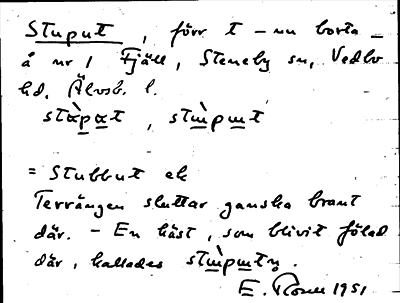 Stuput, förr t – nu borta –
å nr 1 Fjäll, Steneby sn, Vedbo
hd, Älvsb. l.
= Stubbut ek
Terrängen sluttar ganska brant
där. – En häst, som blivit född
där, kallades
E. 1951